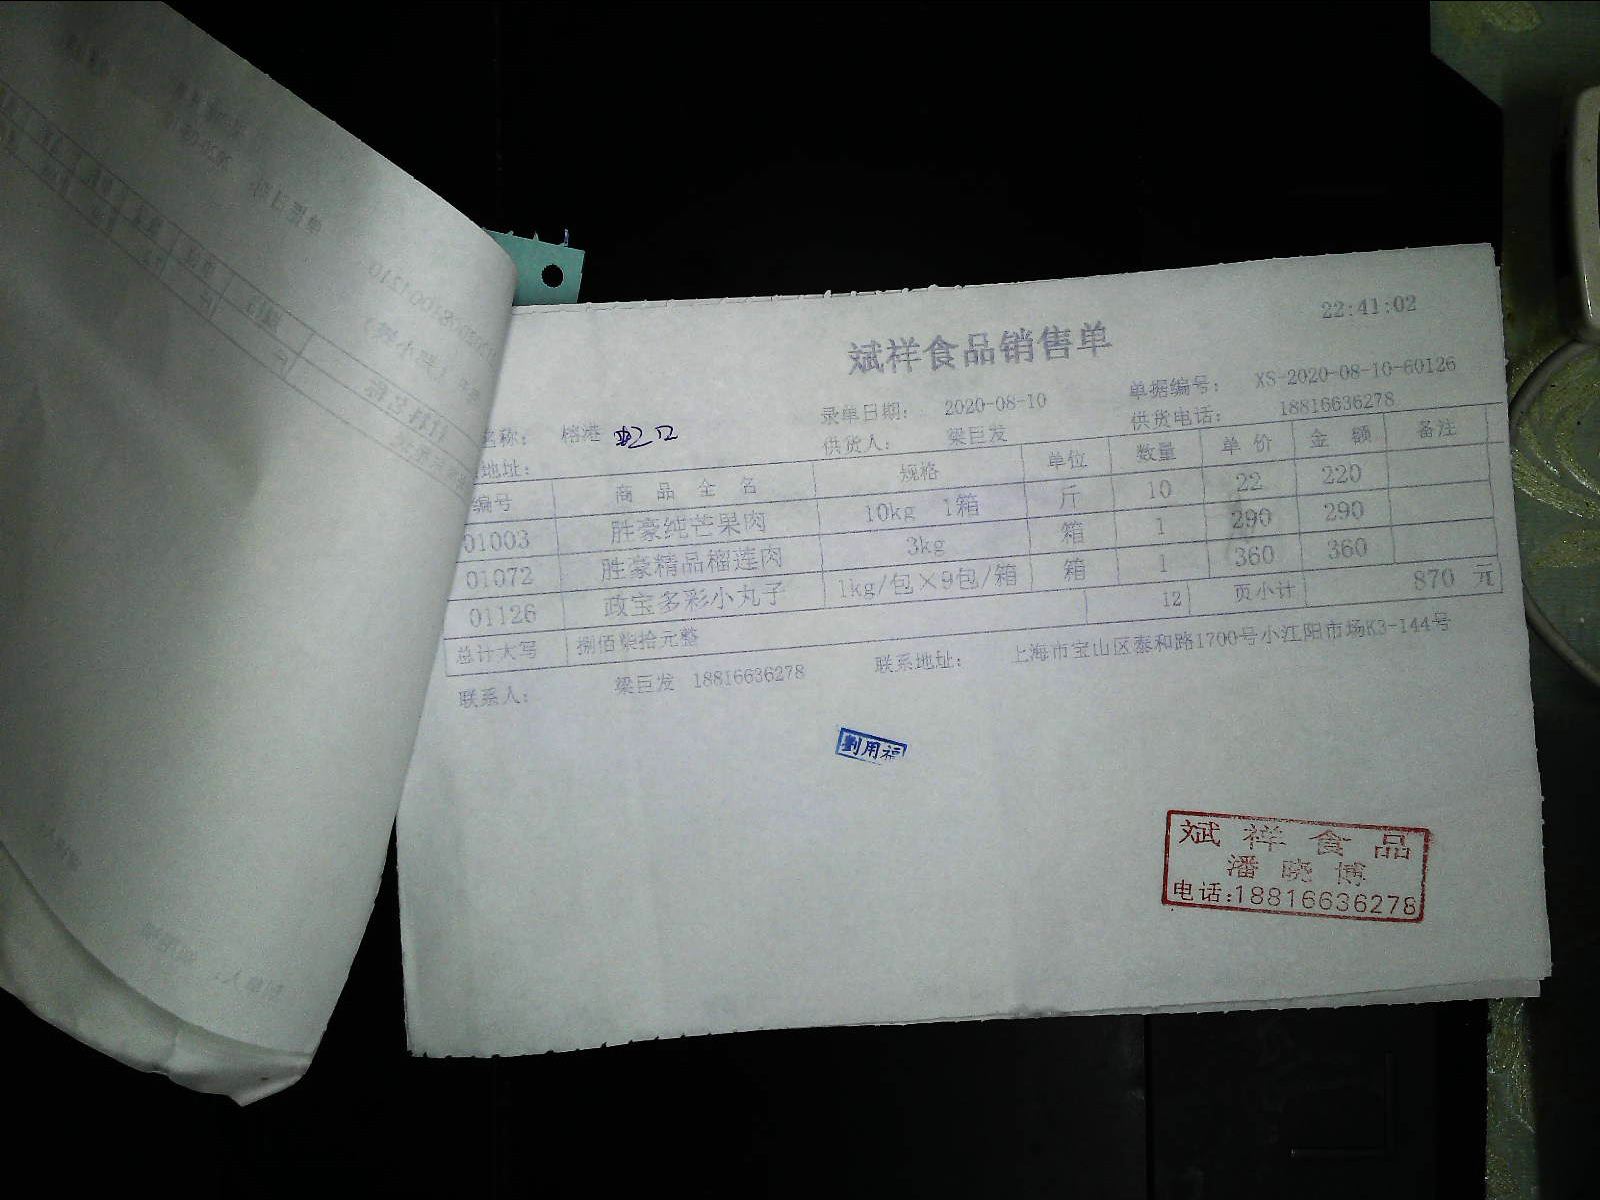 22:41:02
斌祥食品销售单
录单日期： 2020-08-10 单据编号： XS-2020-08-10-60126
名称： 榕港 虹口 供货人： 梁巨发 供货电话： 18816636278
地址：
编号 商品全名 规格 单位 数量 单价 金额 备注
01003 胜豪纯芒果肉 10kg 1箱 斤 10 22 220
01072 胜豪精品榴莲肉 3kg 箱 1 290 290
01126 政宝多彩小丸子 1kg/包×9包/箱 箱 1 360 360
总计大写 捌佰柒拾元整 12 页小计 870 元
联系人： 梁巨发 18816636278 联系地址： 上海市宝山区泰和路1700号小江阳市场K3-144号
劉用福
斌祥食品
潘晓博
电话:18816636278